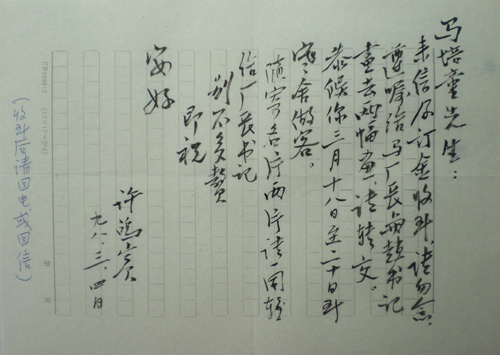 马培童先生:
来信及订金收到,请勿念。
遵嘱给马厂长与赵书记
画去两幅画,请转交。
恭候你三月十八日至二十日到
寒舍做客。
随寄名片两片请一同转
给厂长书记
别不多赘
即祝
安好
许鸿宾
九八.三.四日
(收到后请回电或回信)